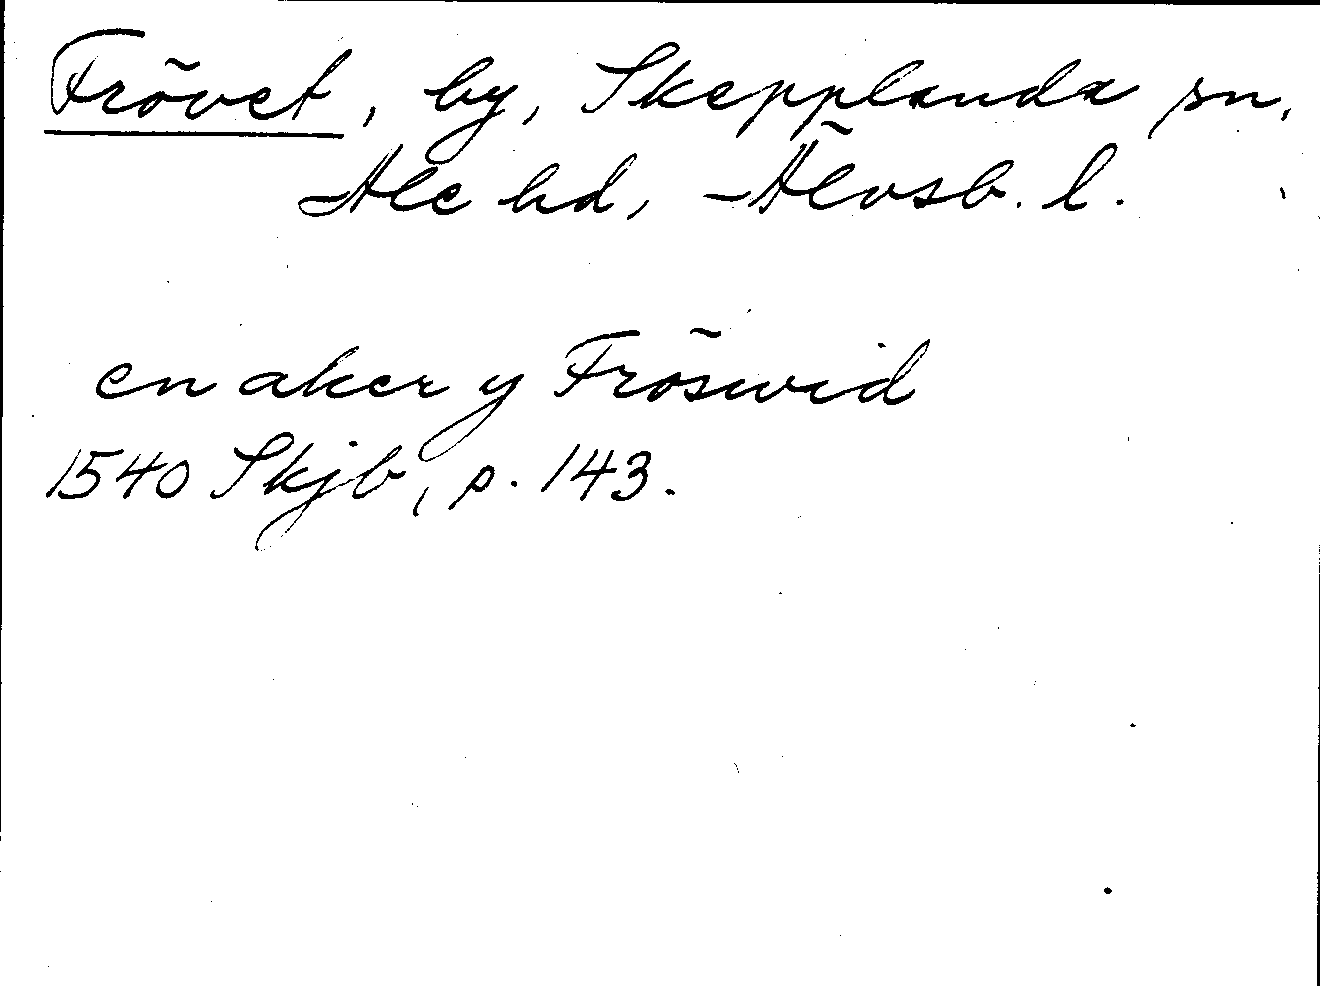 Frövet, by, Skepplanda sn,
Ale hd, Älvsb. l.
en aker y Fröswid
1540 Skjb, p. 143.